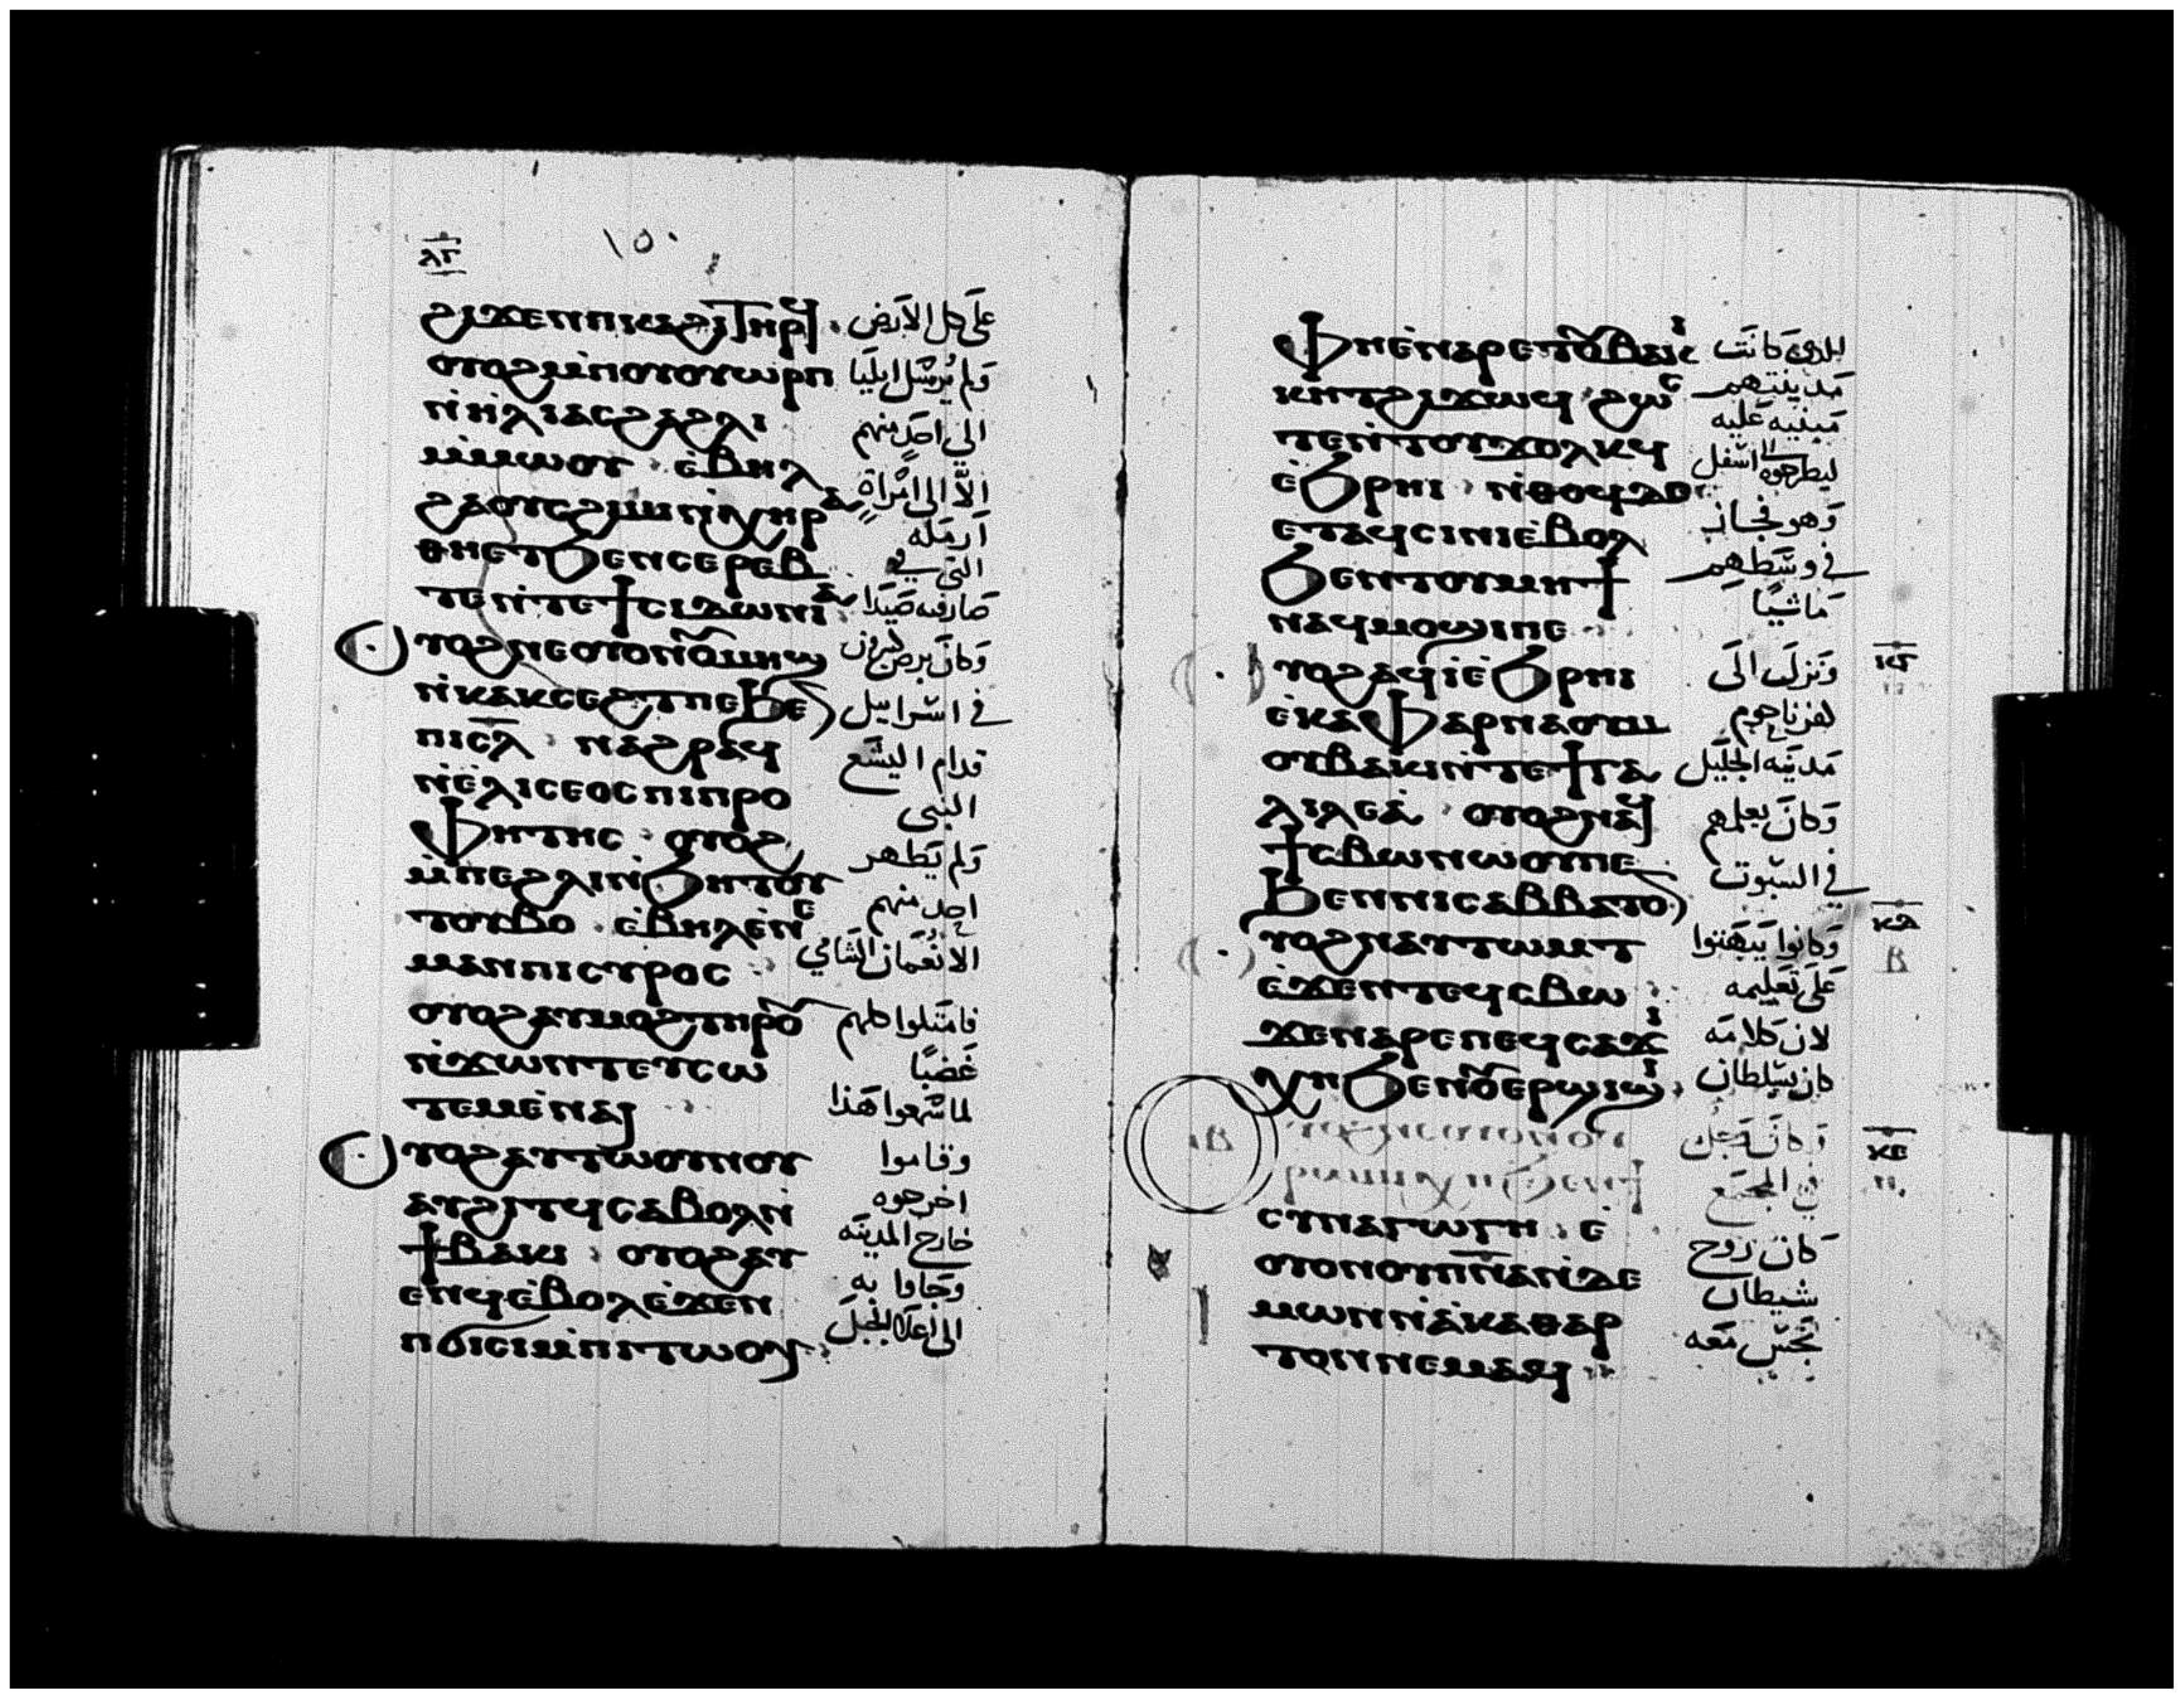 ⲗⲅ
١٥٠
ϩⲓϫⲉⲛⲡⲓⲕⲁϩⲓⲧⲏⲣϥ
على كل الارض
ⲟⲩⲟϩⲙ̀ⲡⲟⲩⲟⲩⲱⲣⲡ
ولم يرسل ايليا
ⲛ̀ⲏⲗⲓⲁⲥϩⲁϩⲗⲓ
الى احد منهم
ⲙ̀ⲙⲱⲟⲩ ⲉ̀ⲃⲏⲗ
الا الى امراة
ϩⲁⲟⲩⲥϩⲓⲙⲓⲛ̀ⲭⲏⲣⲁ
ارمله
ⲑⲏⲉⲧϧⲉⲛⲥⲉⲣⲉⲃ
التي في
ⲧⲉⲛ̀ⲧⲉϯⲥⲓⲇⲱⲛⲓⲁ
صارفيه صيدا
ⲟⲩⲟϩⲛⲉⲟⲩⲟⲛⲟⲩⲙⲏϣ
وكان برص كثيرون
ⲛ̀ⲕⲁⲕⲥⲉϩⲧⲡⲉϧⲉⲛ
في اسراييل
ⲡⲓⲥ̅ⲗ̅ ⲛⲁϩⲣⲁϥ
قدام اليشع
ⲛ̀ⲉ̀ⲗⲓⲥⲉⲟⲥⲡⲓⲡⲣⲟ
النبى
ⲫⲏⲧⲏⲥ ⲟⲩⲟϩ
ولم يطهر
ⲙ̀ⲡⲉϩⲗⲓⲛ̀ϧⲏⲧⲟⲩ
احد منهم
ⲧⲟⲩⲃⲟ ⲉ̀ⲃⲏⲗⲉ̀ⲛⲉ
الا نعمان الشامي
ⲙⲁⲛⲡⲓⲥⲩⲣⲟⲥ
ⲟⲩⲟϩⲁⲩⲙⲟϩⲧⲏⲣⲟⲩ
فامتلوا كلهم
ⲛ̀ϫⲱⲛⲧⲉⲧⲥⲱ
غضبا
ⲧⲉⲙⲉ̀ⲛⲁⲓ
لما سمعوا هذا
ⲟⲩⲟϩⲁⲩⲧⲱⲟⲩⲛⲟⲩ
وقاموا
ⲁⲩϩⲓⲧϥⲥⲁⲃⲟⲗⲛ̀
اخرجوه
ϯⲃⲁⲕⲓ ⲟⲩⲟϩⲁⲩ
خارج المدينه
ⲉⲛϥⲉ̀ⲃⲟⲗⲉ̀ϫⲉⲛ
وجاوا به
ⲡϭⲓⲥⲓⲙ̀ⲡⲓⲧⲱⲟⲩ
الى اعلا الجبل
ⲫⲏⲉ̀ⲛⲁⲣⲉⲧⲟⲩⲃⲁⲕⲓ
الذي كانت
ⲕⲏⲧϩⲓϫⲱϥ ϩⲱⲥ
مدينتهم
مبنيه عليه
ⲧⲉⲛ̀ⲧⲟⲩϫⲟⲗⲕϥ
ليطرحوه الى اسفل
ⲉ̀ϧⲣⲏⲓ ⲛ̀ⲑⲟϥⲇⲉ
وهو فجاز
ⲉⲧⲁϥⲥⲓⲛⲓⲉ̀ⲃⲟⲗ
في وسطهم
ϧⲉⲛⲧⲟⲩⲙⲏϯ
ماشيا
ⲛⲁϥⲙⲟϣⲓⲡⲉ
ⲟⲩⲟϩⲁϥⲓ̀ⲉ̀ϧⲣⲏⲓ
ونزل الى
ⲉ̀ⲕⲁⲫⲁⲣⲛⲁⲟⲩⲙ
كفرناحوم
ⲟⲩⲃⲁⲕⲓⲛ̀ⲧⲉϯⲅⲁ
مدينه الجليل
ⲗⲓⲗⲉⲁ̀ ⲟⲩⲟϩⲛⲁϥ
وكان يعلمهم
ϯⲥⲃⲱⲛⲱⲟⲩⲡⲉ
في السبوت
ϧⲉⲛⲛⲓⲥⲁⲃⲃⲁⲧⲟⲛ
ⲟⲩⲟϩⲛⲁⲩⲧⲱⲙⲧ
وكانوا يبهتوا
ⲉ̀ϫⲉⲛⲧⲉϥⲥⲃⲱ
على تعليمه
ϫⲉⲛⲁⲣⲉⲡⲉϥⲥⲁϫⲓ
لان كلامه
ⲭⲏϧⲉⲛⲟⲩⲉⲣϣⲓϣⲓ
كان بسلطان
وكان رجل
في المجمع
ⲥⲩⲛⲁⲅⲱⲅⲏ ⲉ̀
كان روح
ⲟⲩⲟⲛⲟⲩⲡ̅ⲛ̅ⲁⲛ̀ⲇⲉ
شيطان
ⲙⲱⲛⲛ̀ⲁ̀ⲕⲁⲑⲁⲣ
نجس معه
ⲧⲟⲛⲛⲉⲙⲁϥ